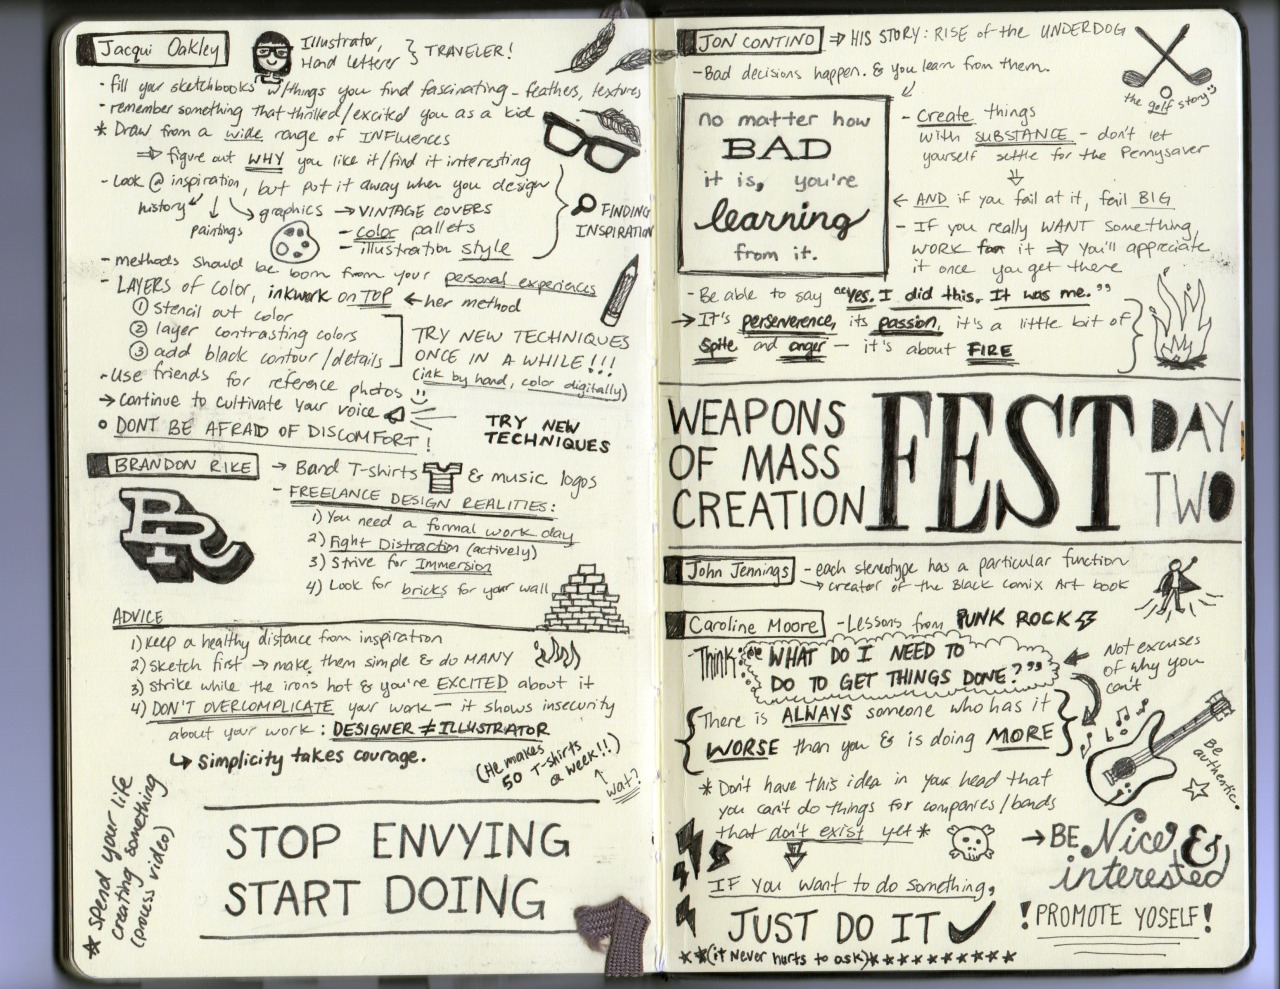 Jacqui Oakley
Illustrator,
Hand Letterer } TRAVELER!
- fill your sketchbooks w/things you find fascinating - feathers, textures
- remember something that thrilled/excited you as a kid
* Draw from a wide range of INFluences
⇒ figure out WHY you like it/find it interesting
- Look @ inspiration, but put it away when you design
history
paintings
graphics → VINTAGE COVERS
- color pallets
- illustration style
FINDING
INSPIRATION
- methods should be born from your personal experiences
- LAYERS of color, inkwork on TOP ← her method
① stencil out color
② layer contrasting colors
③ add black contour/details
TRY NEW TECHNIQUES
ONCE IN A WHILE!!!
(ink by hand, color digitally)
- Use friends for reference photos
→ Continue to cultivate your voice
DONT BE AFRAID OF DISCOMFORT!
TRY NEW
TECHNIQUES
BRANDON RIKE
→ Band T-shirts & music logos
- FREELANCE DESIGN REALITIES:
1) You need a formal work day
2) Fight Distraction (actively)
3) Strive for Immersion
4) Look for bricks for your wall
BR
ADVICE
1) Keep a healthy distance from inspiration
2) Sketch first → make them simple & do MANY
3) Strike while the irons hot & you're EXCITED about it
4) DON'T OVERCOMPLICATE your work — it shows insecurity
about your work: DESIGNER ≠ ILLUSTRATOR
↳ Simplicity takes courage.
(He makes
50 T-shirts
a week!!)
↑
wat?
★ Spend your life
creating something
(process video)
STOP ENVYING
START DOING
JON CONTINO ⇒ HIS STORY: RISE of the UNDERDOG
- Bad decisions happen. & you learn from them.
the golf story
no matter how
BAD
it is, you're
learning
from it.
- Create things
with SUBSTANCE - don't let
yourself settle for the Pennysaver
← AND if you fail at it, fail BIG
- If you really WANT something,
WORK for it ⇒ You'll appreciate
it once you get there
- Be able to say "Yes. I did this. It was me."
→ It's perserverence, its passion, it's a little bit of
Spite and anger — it's about FIRE
WEAPONS
OF MASS
CREATION
FEST
DAY
TWO
John Jennings
- each stereotype has a particular function
→ creator of the Black Comix Art book
Caroline Moore
- Lessons from PUNK ROCK
- THINK: "WHAT DO I NEED TO
DO TO GET THINGS DONE?"
Not excuses
of why you
can't
{ There is ALWAYS someone who has it
WORSE than you & is doing MORE }
Be
authentic.
* Don't have this idea in your head that
you can't do things for companies/bands
that don't exist yet *
IF you want to do something,
JUST DO IT ✓
★★(it never hurts to ask)★★★★★★★★★★
→ BE Nice &
interested
! PROMOTE YOSELF!